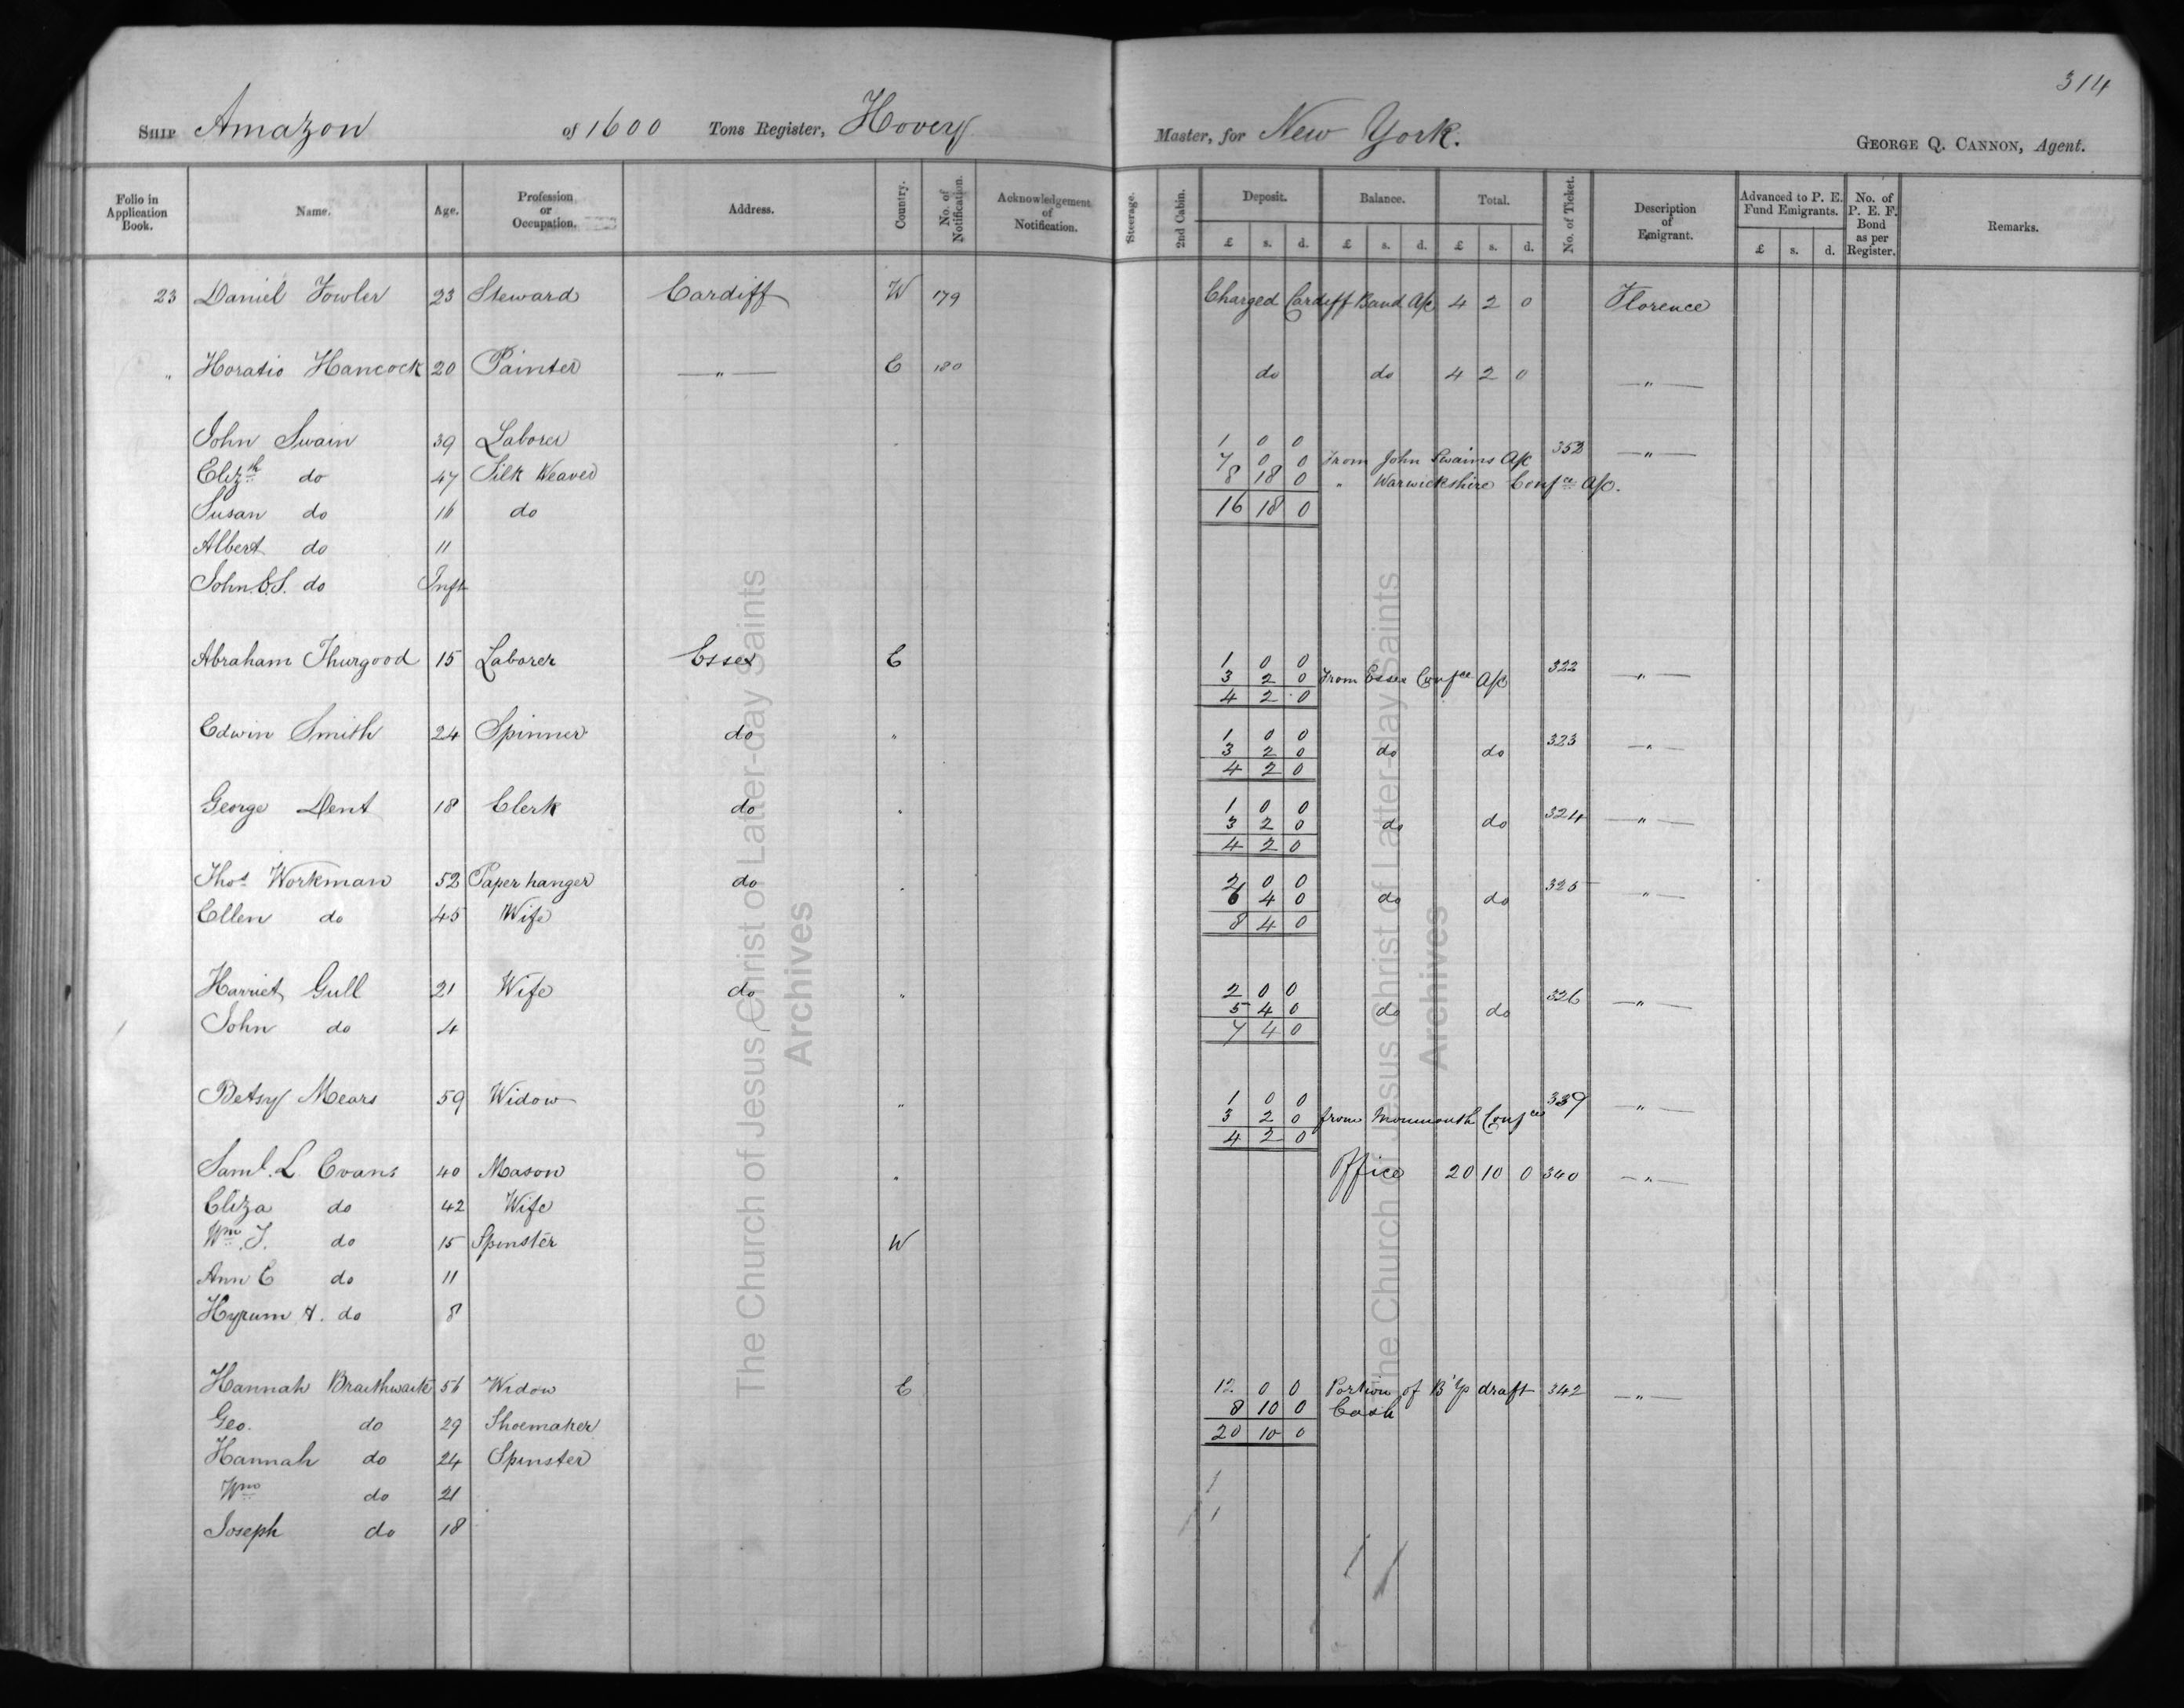 314
SHIP Amazon of 1600 Tons Register, Hovey Master, for New York. GEORGE Q. CANNON, Agent.
Folio in Application Book. Name. Age. Profession or Occupation. Address. Country. No. of Notification. Acknowledgement of Notification. Steerage. 2nd Cabin. Deposit. Balance. Total. No. of Ticket. Description of Emigrant. Advanced to P. E. Fund Emigrants. No. of P. E. F. Bond as per Register. Remarks.
£ s. d. £ s. d. £ s. d. £ s. d.
23 Daniel Fowler 23 Steward Cardiff W 179 Charged Cardiff Band A/c 4 2 0 Florence
" Horatio Hancock 20 Painter " E 180 do do 4 2 0 "
John Swain 39 Laborer 1 0 0 353 "
7 0 0 From John Swains A/c
Elizth do 47 Silk Weaver 8 18 0 " Warwickshire Confce A/c.
Susan do 16 do 16 18 0
Albert do 11
John E.S. do Inft
Abraham Thurgood 15 Laborer Essex E 1 0 0 322 "
3 2 0 From Essex Confce A/c
4 2 0
Edwin Smith 24 Spinner do " 1 0 0 323 "
3 2 0 do do
4 2 0
George Dent 18 Clerk do " 1 0 0 324 "
3 2 0 do do
4 2 0
Thos Workman 52 Paper hanger do " 2 0 0 325 "
6 4 0 do do
Ellen do 45 Wife 8 4 0
Harriet Gull 21 Wife do " 2 0 0 326 "
5 4 0 do do
John do 4 7 4 0
Betsy Mears 59 Widow " 1 0 0 339 "
3 2 0 from Monmouth Confce
4 2 0
Saml. L Evans 40 Mason " Office 20 10 0 340 "
Eliza do 42 Wife
Wm J. do 15 Spinster W
Ann E do 11
Hyrum A. do 8
Hannah Braithwaite 56 Widow E 12 0 0 Portion of B'Yo draft 342 "
8 10 0 Cash
Geo. do 29 Shoemaker 20 10 0
Hannah do 24 Spinster
Wm do 21
Joseph do 18
The Church of Jesus Christ of Latter-day Saints
Archives
The Church of Jesus Christ of Latter-day Saints
Archives